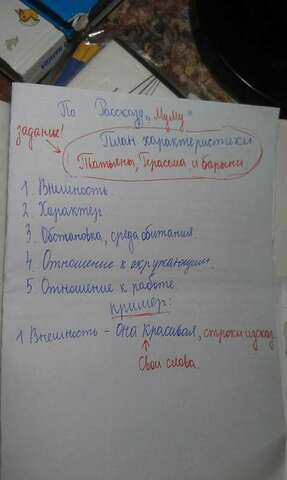 По Рассказу „Муму"
задание!
План характеристики
Татьяны, Герасима и барыни
1. Внешность.
2. Характер
3. Обстановка, среда обитания.
4. Отношение к окружающим.
5. Отношение к работе
пример:
1 Внешность - она красивая, строки из расск
Свои слова